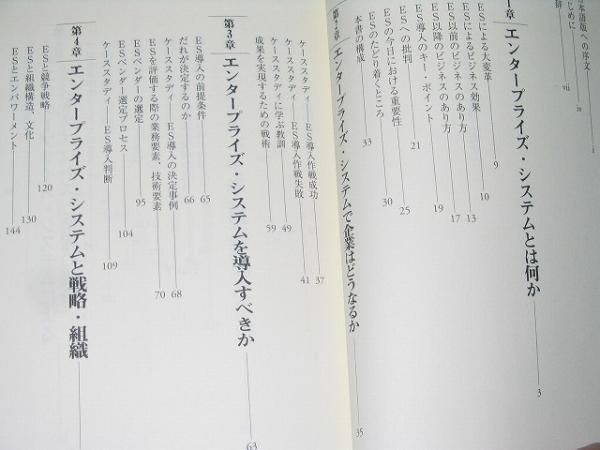 本語版への序文 iv
じめに vii
辞
章 エンタープライズ・システムとは何か 3
ESによる大変革 9
ESによるビジネス効果 10
ES以前のビジネスのあり方 13
ES以降のビジネスのあり方 17
ES導入のキー・ポイント 19
ESへの批判 21
ESの今日における重要性 25
ESのたどり着くところ 30
本書の構成 33
第2章 エンタープライズ・システムで企業はどうなるか 35
ケーススタディ——ES導入作戦成功 37
ケーススタディ——ES導入作戦失敗 41
ケーススタディに学ぶ教訓 49
成果を実現するための戦術 59
第3章 エンタープライズ・システムを導入すべきか 63
ES導入の前提条件 65
だれが決定するのか 66
ケーススタディ——ES導入の決定事例 68
ESを評価する際の業務要素、技術要素 70
ESベンダーの選定 95
ESベンダー選定プロセス 104
ケーススタディ——ES導入判断 109
第4章 エンタープライズ・システムと戦略・組織
ESと競争戦略 120
ESと組織構造、文化 130
ESとエンパワーメント 144